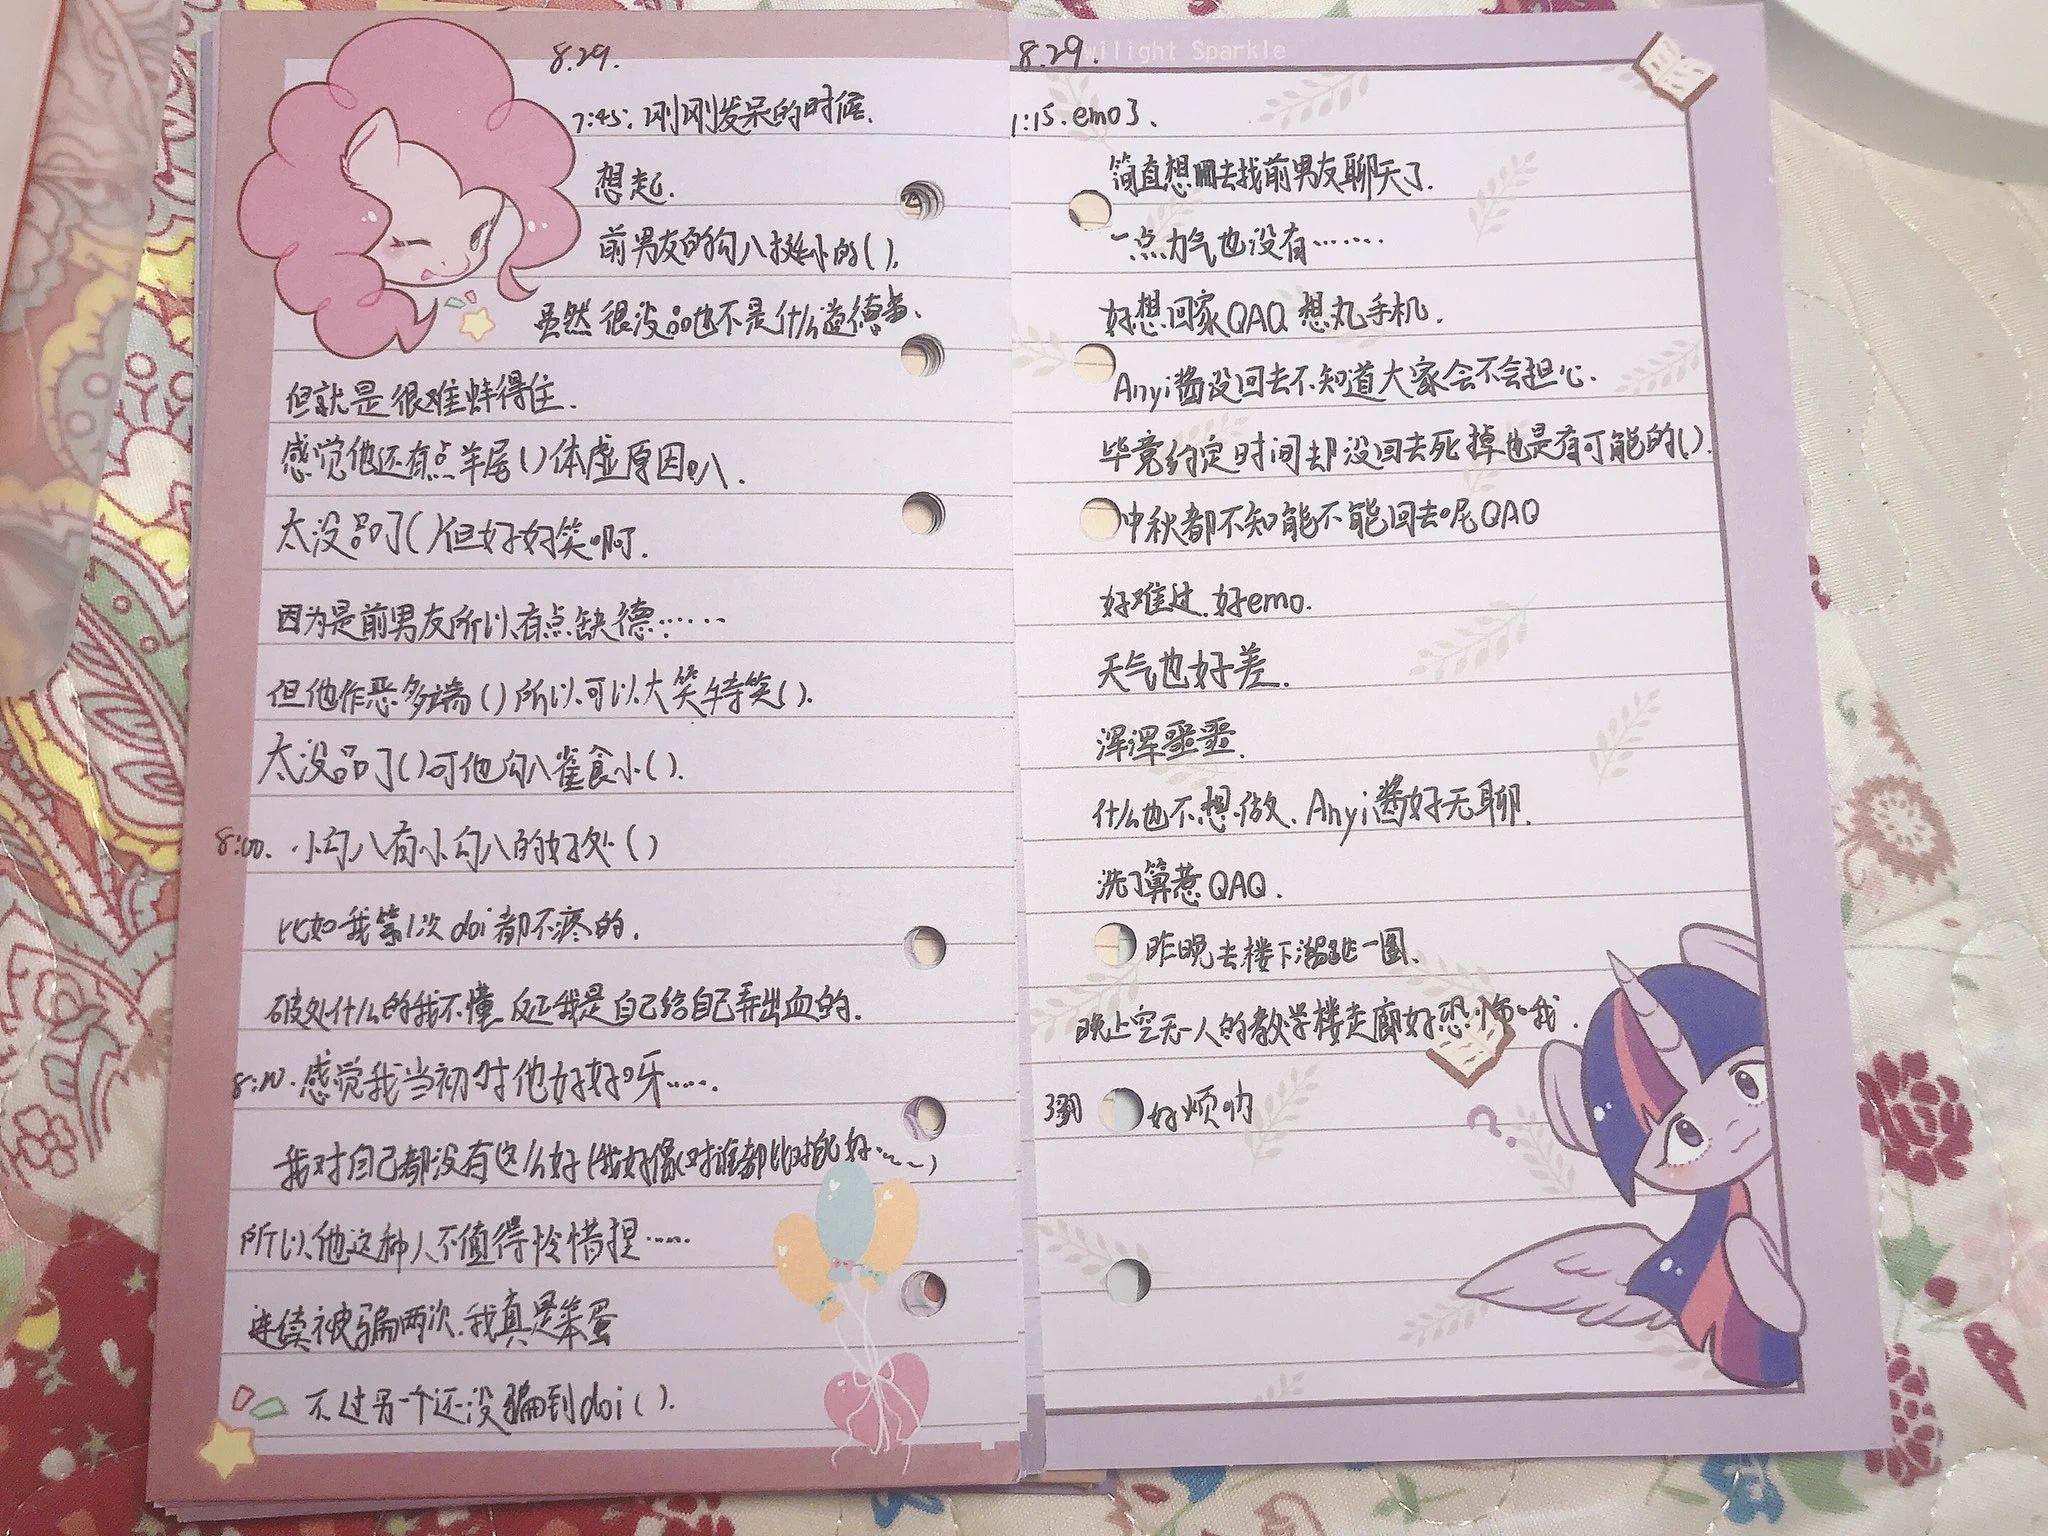 8.29.
7:45. 刚刚发呆的时候.
想起.
前男友的勾八挺小的().
虽然很没品也不是什么道德、
但就是很难蚌得住.
感觉他还有点羊尾()体虚原因叭.
太没品了()但好好笑啊.
因为是前男友所以有点缺德……
但他作恶多端()所以可以大笑特笑().
太没品了()可他勾八雀食小().
8:00. 小勾八有小勾八的好处()
比如我第1次doi都不疼的.
破处什么的我不懂.反正我是自己给自己弄出血的.
感觉我当初对他好好呀……
我对自己都没有这么好(我好像对谁都比对自己好……)
所以他这种人不值得怜惜捏……
连续被骗两次.我真是笨蛋
不过另一个还没骗到doi().
8.29. Twilight Sparkle
1:15. emo了、
简直想回去找前男友聊天了.
一点力气也没有……
好想回家QAQ 想丸手机.
Anyi酱没回去不知道大家会不会担心.
毕竟约定时间却没回去死掉也是有可能的().
中秋都不知能不能回去呢QAQ
好难过.好emo.
天气也好差.
浑浑噩噩.
什么也不想做.Anyi酱好无聊.
洗了算惹QAQ.
昨晚去楼下溜跶一圈.
晚上空无一人的教学楼走廊好恐怖哦.
好烦叻
?